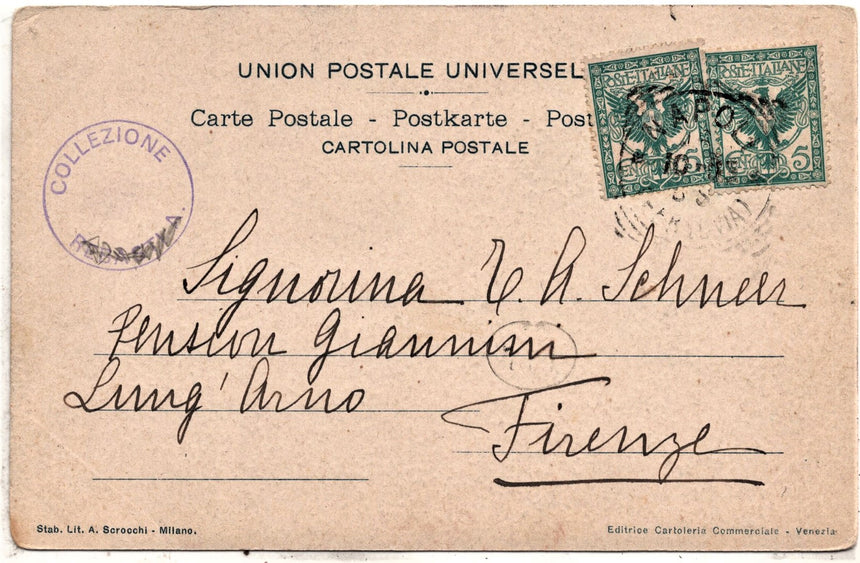 UNION POSTALE UNIVERSEL
Carte Postale - Postkarte - Post
CARTOLINA POSTALE
POSTE·ITALIANE
CENT. 5
POSTE·ITALIANE
CENT. 5
NAPOLI
10
COLLEZIONE
Signorina E. A. Schneer
Pension Giannini
Lung' Arno
Firenze
Stab. Lit. A. Scrocchi - Milano.
Editrice Cartoleria Commerciale - Venezia